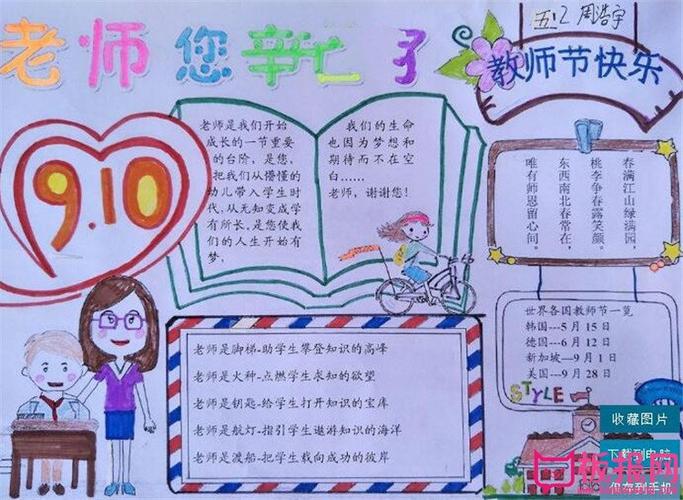 老师您辛亡了
五12 周浩宇
教师节快乐
9.10
老师是我们开始
成长的一节重要
的台阶,是您,
把我们从懵懂的
幼儿带入学生时
代,从无知变成学
有所长,是您使我
们的人生开始有
梦;
我们的生命
也因为梦想和
期待而不在空
白……
老师,谢谢您!
春满江山绿满园,
桃李争春露笑颜。
东西南北春常在,
唯有师恩留心间。
世界各国教师节一览
韩国—5 月 15 日
德国—6 月 12 日
新加坡—9 月 1 日
美国—9 月 28 日
STYLE
老师是脚梯-助学生攀登知识的高峰
老师是火种-点燃学生求知的欲望
老师是钥匙-给学生打开知识的宝库
老师是航灯-指引学生遨游知识的海洋
老师是渡船-把学生载向成功的彼岸
收藏图片
下载到电脑
板报网
保存到手机